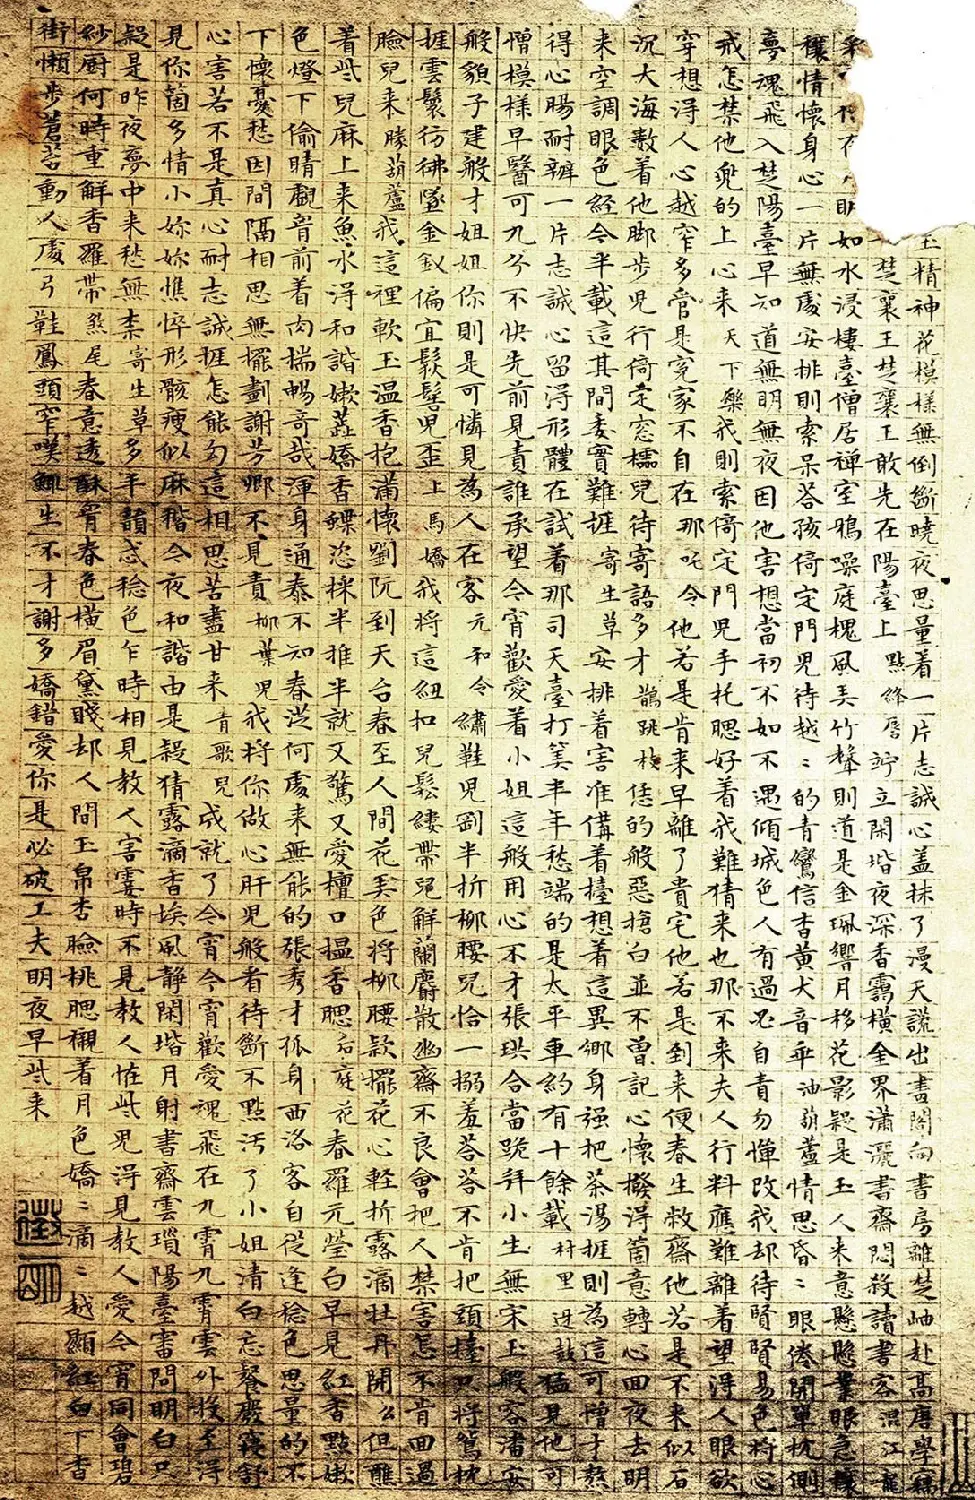 玉精神花模樣無倒斷曉夜思量着一片志誠心蓋抹了漫天謊出畫閣向書房離楚岫赴高唐學竊
楚襄王楚襄王敢先在陽臺上點絳唇竚立閑堦夜深香靄橫金界瀟灑書齋悶殺讀書客混江龍
如水浸樓臺僧居禪室鴉噪庭槐風弄竹聲則道是金珮響月移花影疑是玉人來意懸懸業眼急攘
攘情懷身心一片無處安排則索呆荅孩倚定門兒待越〻的青鸞信杳黃犬音乖油葫蘆情思昏〻眼倦開單枕側
夢魂飛入楚陽臺早知道無明無夜因他害想當初不如不遇傾城色人有過必自責勿憚改我却待賢賢易色將心
戒怎禁他兜的上心來天下樂我則索倚定門兒手托腮好着我難猜來也那不來夫人行料應難離着望得人眼欲
穿想得人心越窄多管是冤家不自在那吒令他若是肯來早離了貴宅他若是到來便春生敝齋他若是不來似石
沉大海數着他脚步兒行倚定窓檽兒待寄語多才鵲跳枝恁的般惡搶白並不曾記心懷撥得箇意轉心回夜去明
來空調眼色經今半載這其間委實難捱寄生草安排着害准備着擡想着這異鄉身强把茶湯捱則為這可憎才熬
得心腸耐辦一片志誠心留得形體在試着那司天臺打筭半年愁端的是太平車約有十餘載村里迓鼓猛見他可
憎模樣早醫可九分不快先前見責誰承望今宵歡愛着小姐這般用心不才張珙合當跪拜小生無宋玉般容潘安
般貌子建般才姐姐你則是可憐見為人在客元和令繡鞋兒剛半折柳腰兒恰一搦羞荅荅不肯把頭擡只將鴛枕
捱雲鬟彷彿墜金釵偏宜鬆髻兒歪上馬嬌我將這紐扣兒鬆縷帶兒解蘭麝散幽齋不良會把人禁害怎不肯回過
臉兒來勝葫蘆我這裡軟玉温香抱滿懷劉阮到天台春至人間花弄色將柳腰款擺花心輕折露滴牡丹開么但蘸
着些兒麻上來魚水得和諧嫩蕊嬌香蝶恣採半推半就又驚又愛檀口揾香腮后庭花春羅元瑩白早見紅香點嫩
色燈下偷睛覷胷前着肉揣暢奇哉渾身通泰不知春從何處來無能的張秀才孤身西洛客自從逢稔色思量的不
下懷憂愁因間隔相思無擺劃謝芳卿不見責柳葉兒我將你做心肝兒般看待斷不點汚了小姐清白忘餐廢寢舒
心害若不是真心耐志誠捱怎能勾這相思苦盡甘來青歌兒成就了今宵今宵歡愛魂飛在九霄九霄雲外投至得
見你箇多情小妳妳憔悴形骸瘦似麻稭今夜和諧由是疑猜露滴香埃風靜閑堦月射書齋雲瑣陽臺審問明白只
疑是昨夜夢中來愁無柰寄生草多丰韻忒稔色乍時相見教人害霎時不見教人恠些兒得見教人愛今宵同會碧
紗厨何時重解香羅帶煞尾春意透酥胷春色橫眉黛賤却人間玉帛杏臉桃腮襯着月色嬌〻滴〻越顯紅白下香
街懶步蒼苔動人處弓鞋鳳頭窄嘆鯫生不才謝多嬌錯愛你是必破工夫明夜早些來
徵明